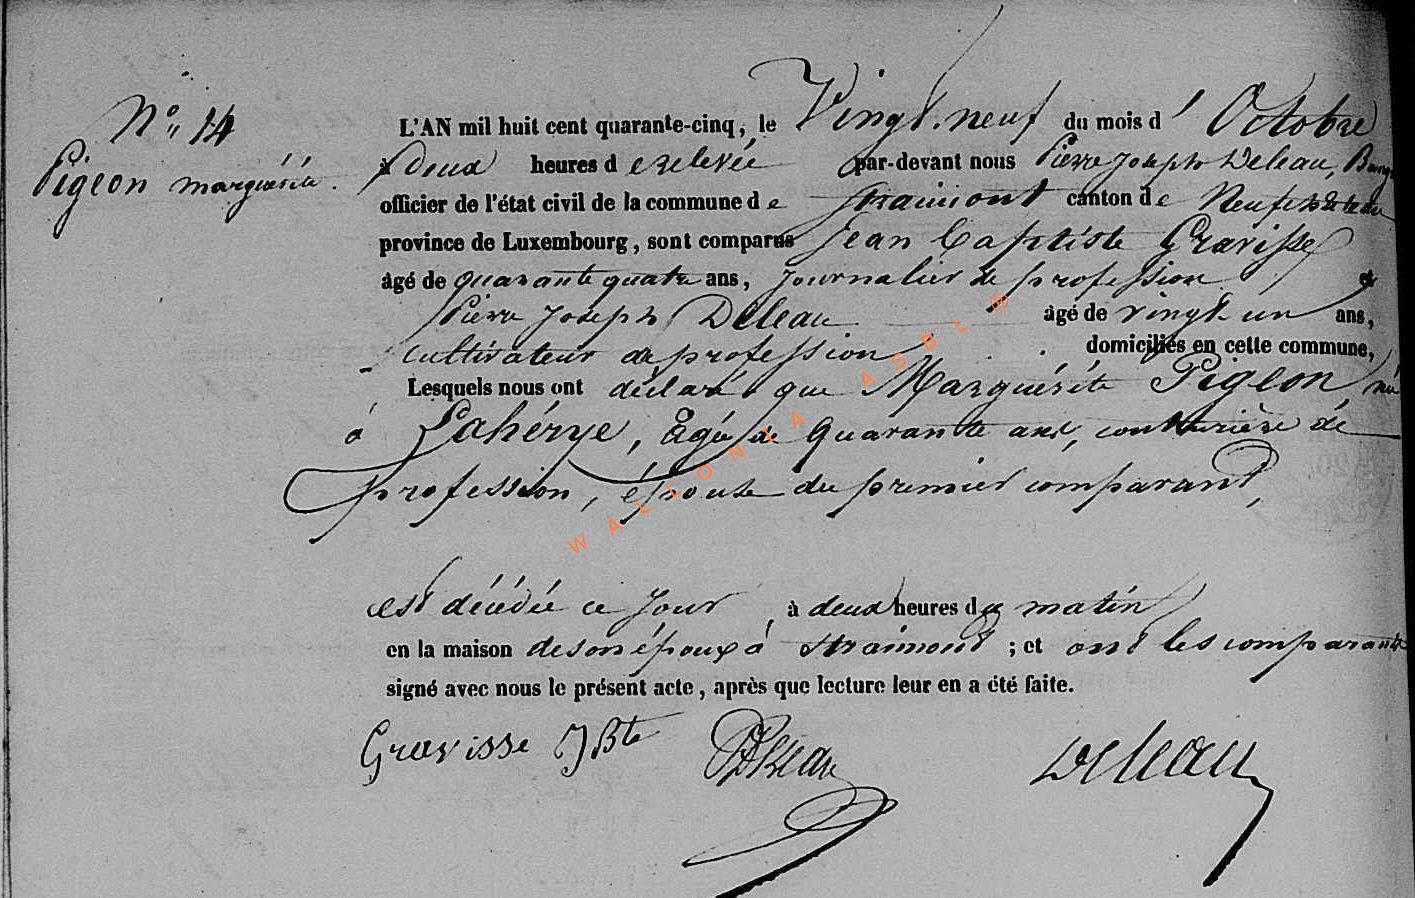 N° 14
Pigeon marguérite.
L'AN mil huit cent quarante-cinq, le Vingt-neuf du mois d'Octobre
à deux heures de relevée par-devant nous Pierre Joseph Deleau, Bourg
officier de l'état civil de la commune de Straimont canton de Neufchateau
province de Luxembourg, sont comparus Jean Baptiste Gravisse
âgé de quarante quatre ans, Journalier de profession et
Pierre Joseph Deleau âgé de vingt un ans,
cultivateur de profession domiciliés en cette commune,
Lesquels nous ont déclaré que Marguérite Pigeon, née
à Lahérye, âgée de quarante ans, couturière de
profession, épouse du premier comparant,
est décédée ce jour, à deux heures du matin
en la maison de son époux à Straimont ; et ont les comparants
signé avec nous le présent acte, après que lecture leur en a été faite.
Gravisse J Bte PJDeleau Deleau
WALLONIA ASBL ©